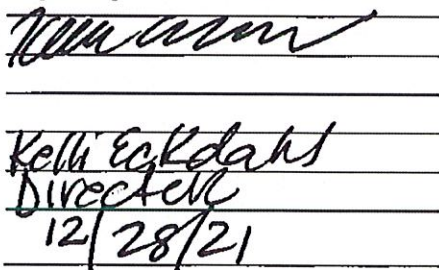 Kelli Eckdahl
Director
12/28/21